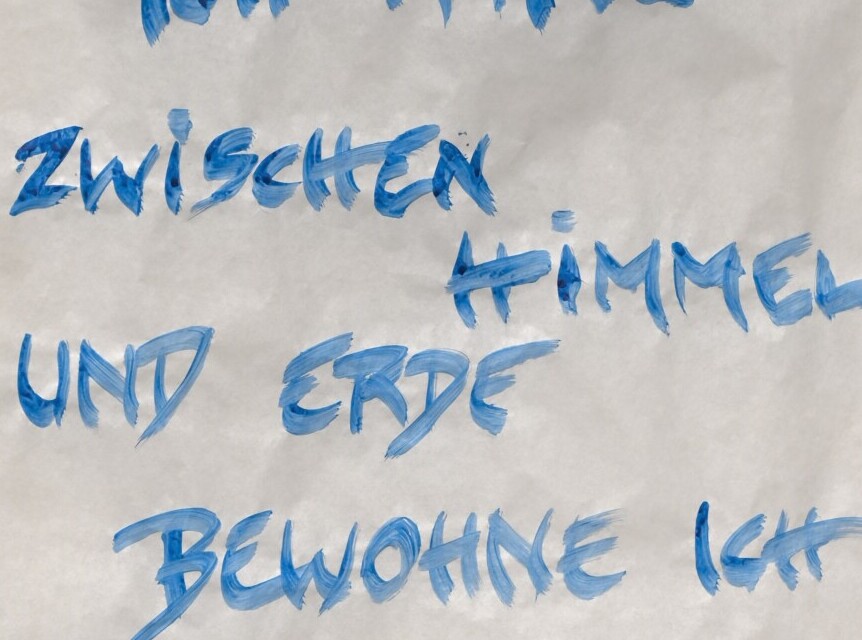 ZWiSCHEN
HiMMEL
UND ERDE
BEWOHNE ICH